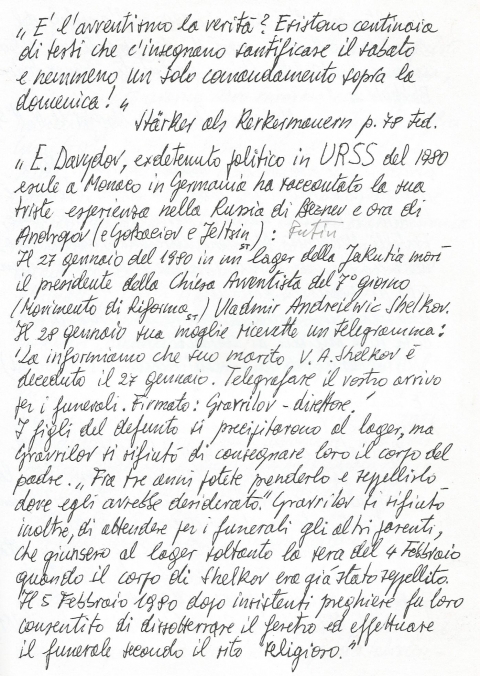 „ E' l'avventismo la verità? Esistono centinaia
di testi che c'insegnano santificare il sabato
e nemmeno un solo comandamento sopra la
domenica! "
Stärker als Kerkermauern p. 78 ted.
„ E. Davydov, exdetenuto politico in URSS del 1980
esule a Monaco in Germania ha raccontato la sua
triste esperienza nella Russia di Breznev e ora di
Andropov (e Gorbaciov e Jeltsin) : Putin
Il 27 gennaio del 1980 in un lager della Jakutia morì
il presidente della Chiesa Avventista del 7° giorno
(Movimento di Riforma ST) Vladimir Andreilewic Shelkov.
Il 28 gennaio sua moglie ricevette un telegramma:
'La informiamo che suo marito V. A. Shelkov è
deceduto il 27 gennaio. Telegrafare il vostro arrivo
per i funerali. Firmato: Gravrilov - direttore.'
I figli del defunto si precipitarono al lager, ma
Gravrilov si rifiutò di consegnare loro il corpo del
padre. „ Fra tre anni potete prenderlo e seppellirlo
dove egli avrebbe desiderato." Gravrilov si rifiutò
inoltre, di attendere per i funerali gli altri parenti,
che giunsero al lager soltanto la sera del 4 Febbraio
quando il corpo di Shelkov era già stato seppellito.
Il 5 Febbraio 1980 dopo insistenti preghiere fu loro
consentito di dissotterrare il feretro ed effettuare
il funerale secondo il rito religioso."